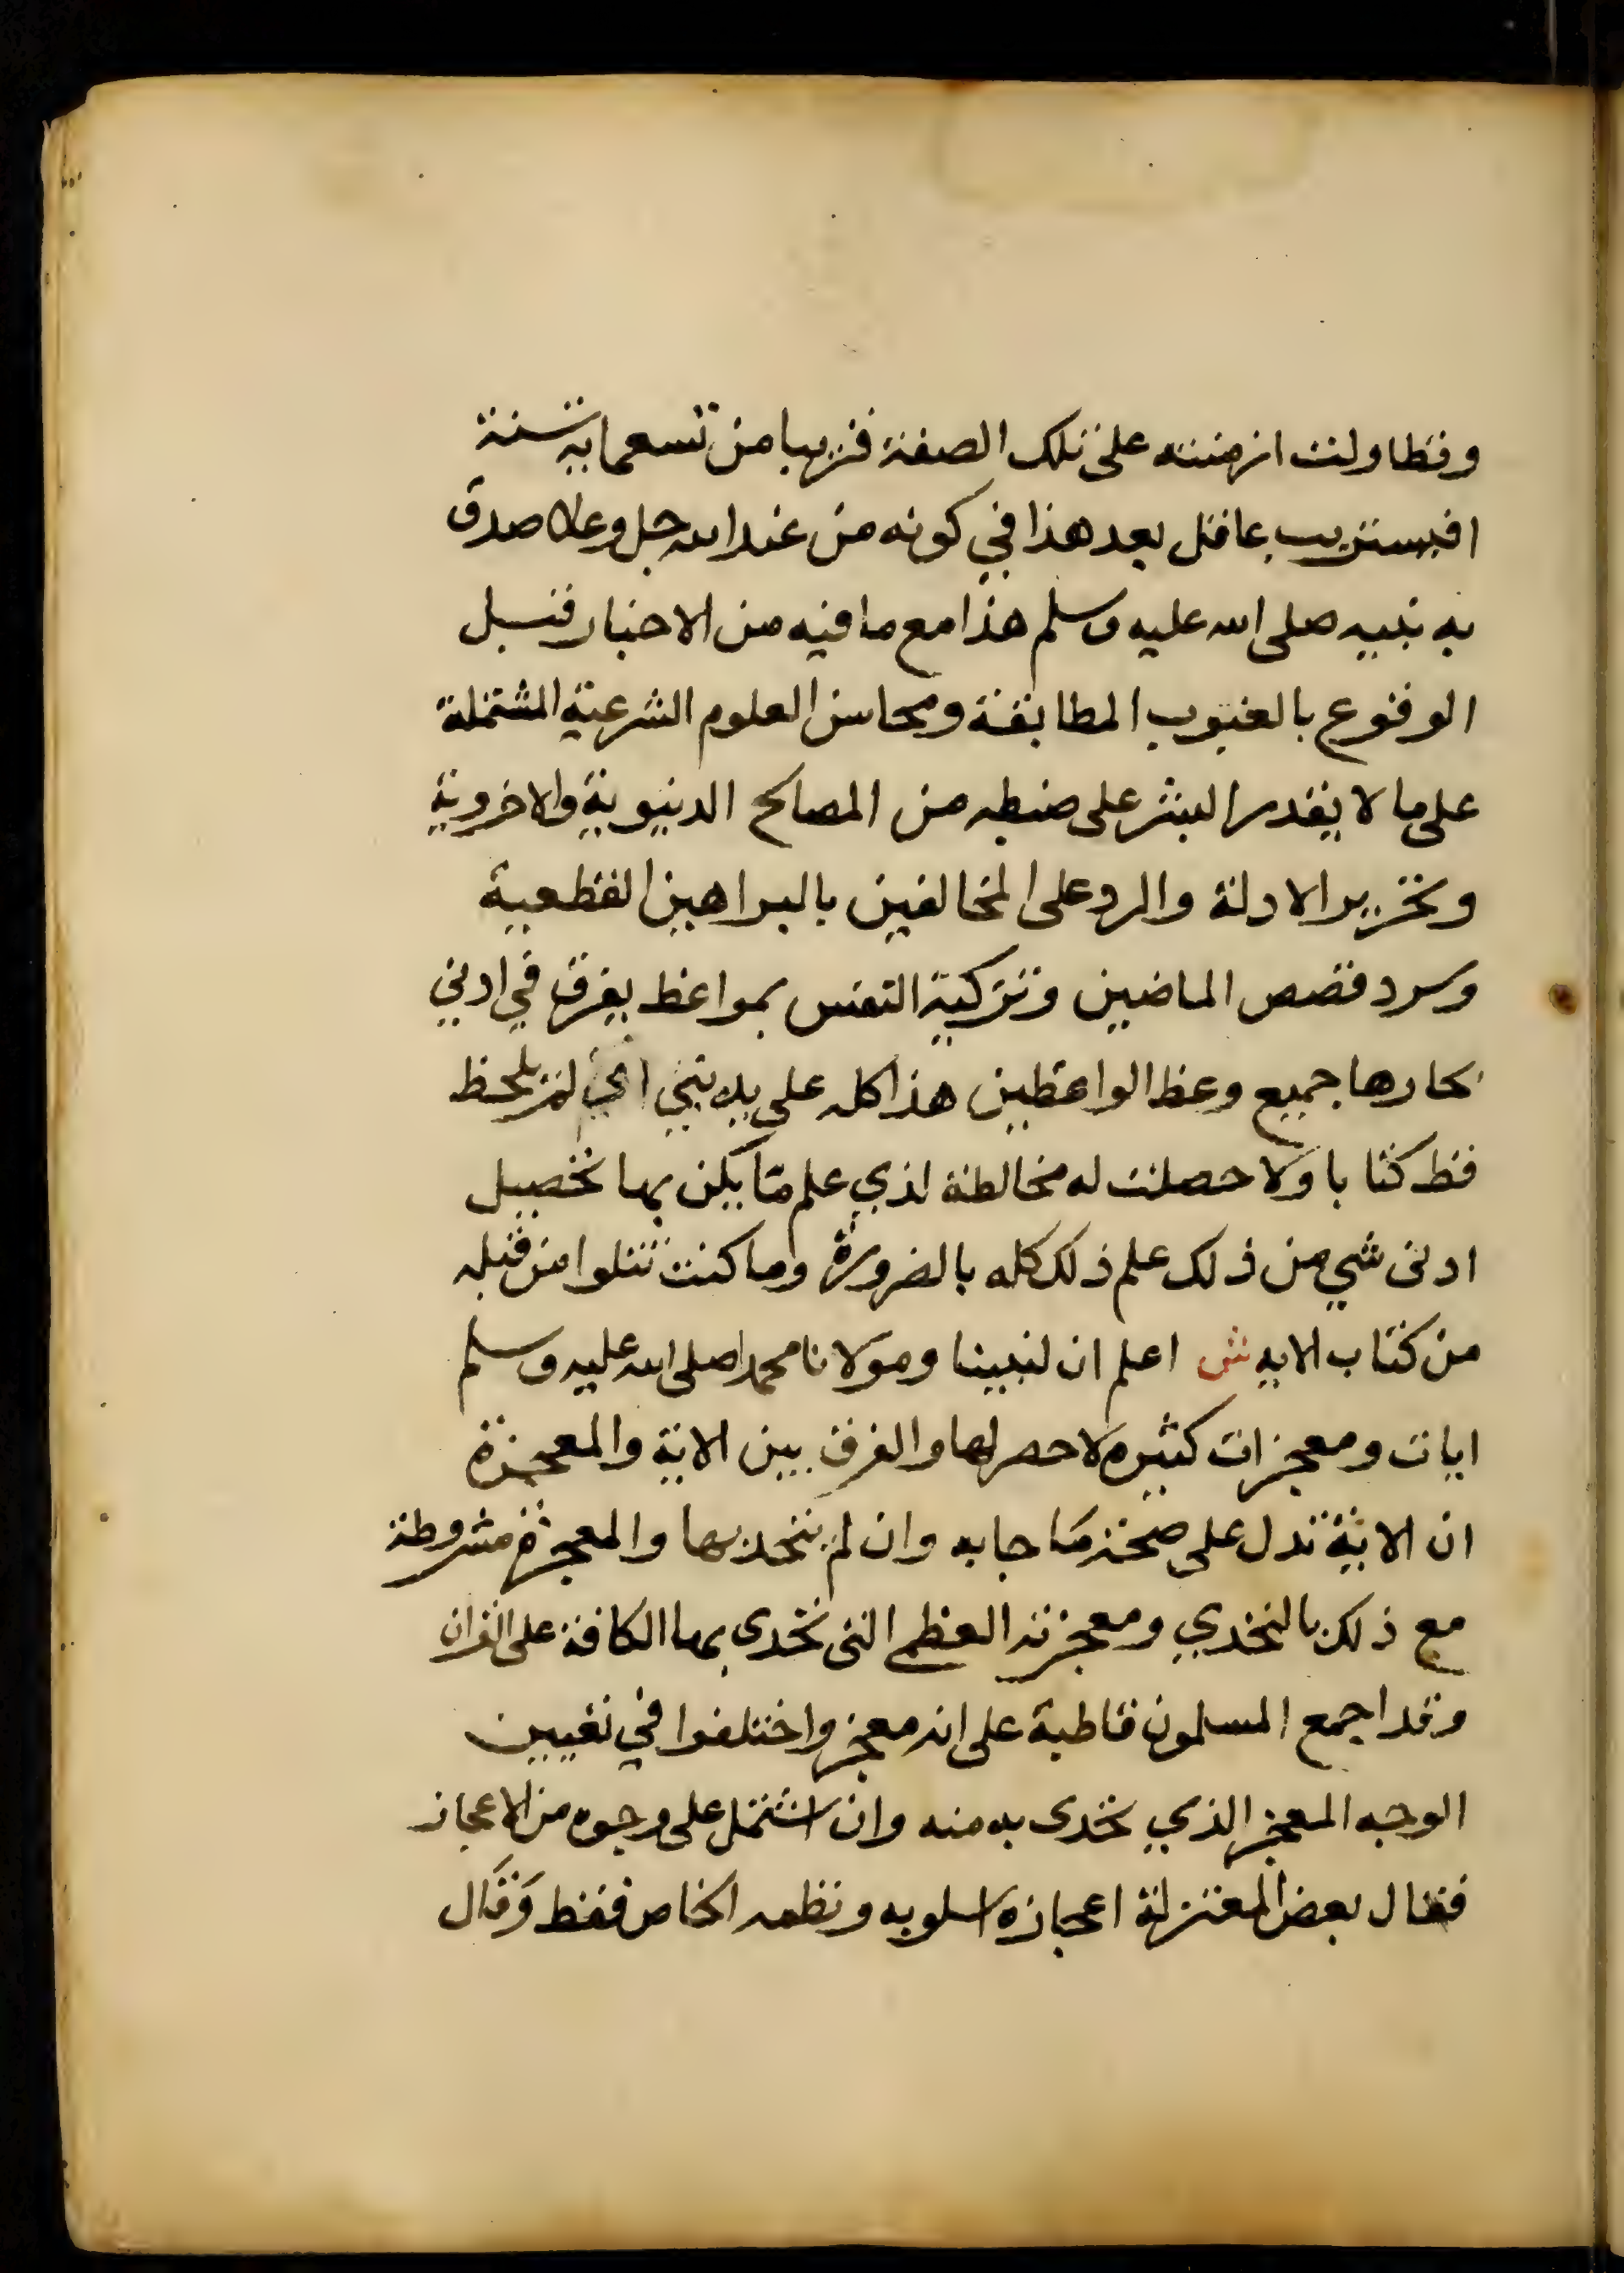 وتطاولت ازمنته على تلك الصفة قريبا من تسعماية سنة
افيستريب عاقل بعد هذا في كونه من عند الله جل وعلا صدق
به نبيه صلى الله عليه وسلم هذا مع ما فيه من الاخبار قبل
الوقوع بالغيوب المطابقة ومحاسن العلوم الشرعية المشتملة
على ما لا يقدر البشر على ضبطه من المصالح الدنيوية والاخروية
وتحرير الادلة والرد على المخالفين بالبراهين القطعية
وسرد قصص الماضين وتزكية النفس بمواعظ يغرق في ادني
بحارها جميع وعظ الواعظين هذا كله على يد نبي امي لم يلحظ
قط كتابا ولا حصلت له مخالطة لذي علم ما يمكن بها تحصيل
ادنى شي من ذلك علم ذلك كله بالضرورة وما كنت تتلوا من قبله
من كتاب الايه ش اعلم ان لنبينا ومولانا محمد صلى الله عليه وسلم
ايات ومعجزات كثيره لا حصر لها والفرق بين الاية والمعجزة
ان الاية تدل على صحة ما جا به وان لم يتحد بها والمعجزة مشروطة
مع ذلك بالتحدي ومعجزته العظمى التى تحدى بها الكافة على القران
وقد اجمع المسلمون قاطبة على انه معجز واختلفوا في تعيين
الوجه المعجز الذي تحدى به منه وان اشتمل على وجوه من الاعجاز
فقال بعض المعتزلة اعجازه اسلوبه ونظمه الخاص فقط وقال